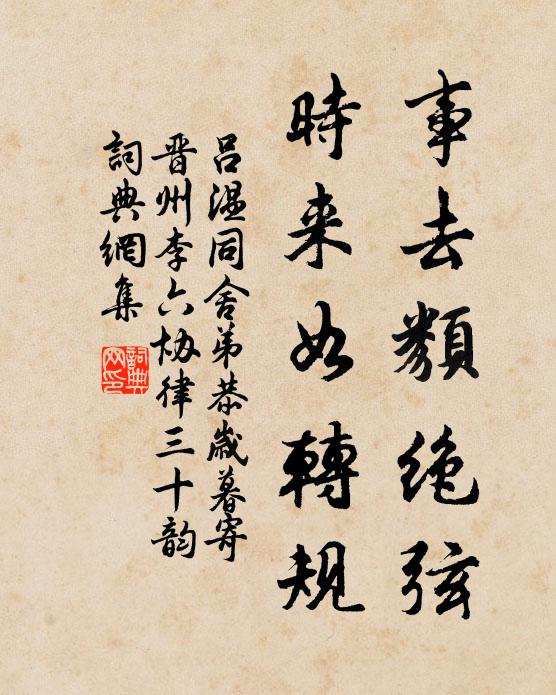 事去類絶弦
時来如轉規
吕温同舍弟恭歲暮寄
晋州李六协律三十韵
詞典網集
詞典网印